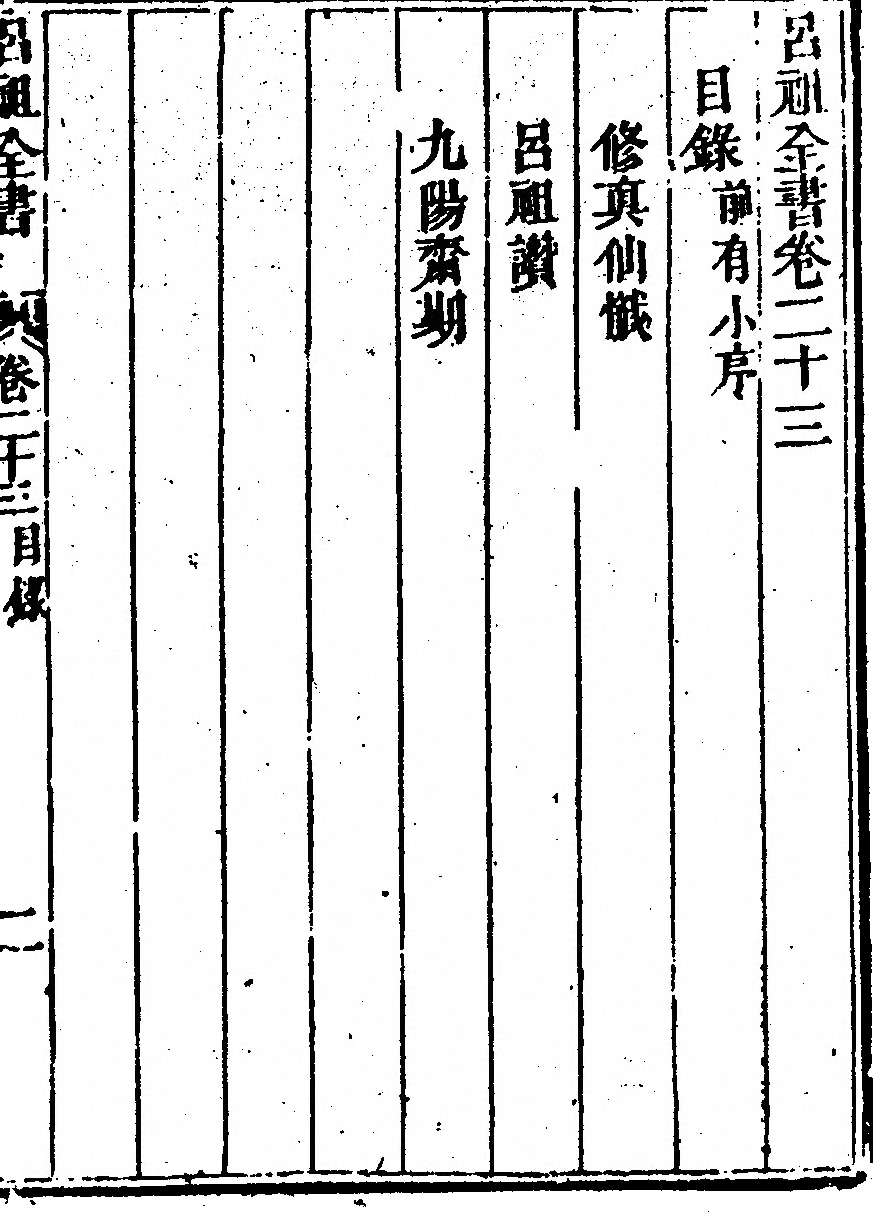 呂祖全書卷二十三
目錄 前有小序
修真仙懺
呂祖讚
九陽齋期
呂祖全書 卷二十三 目錄 一